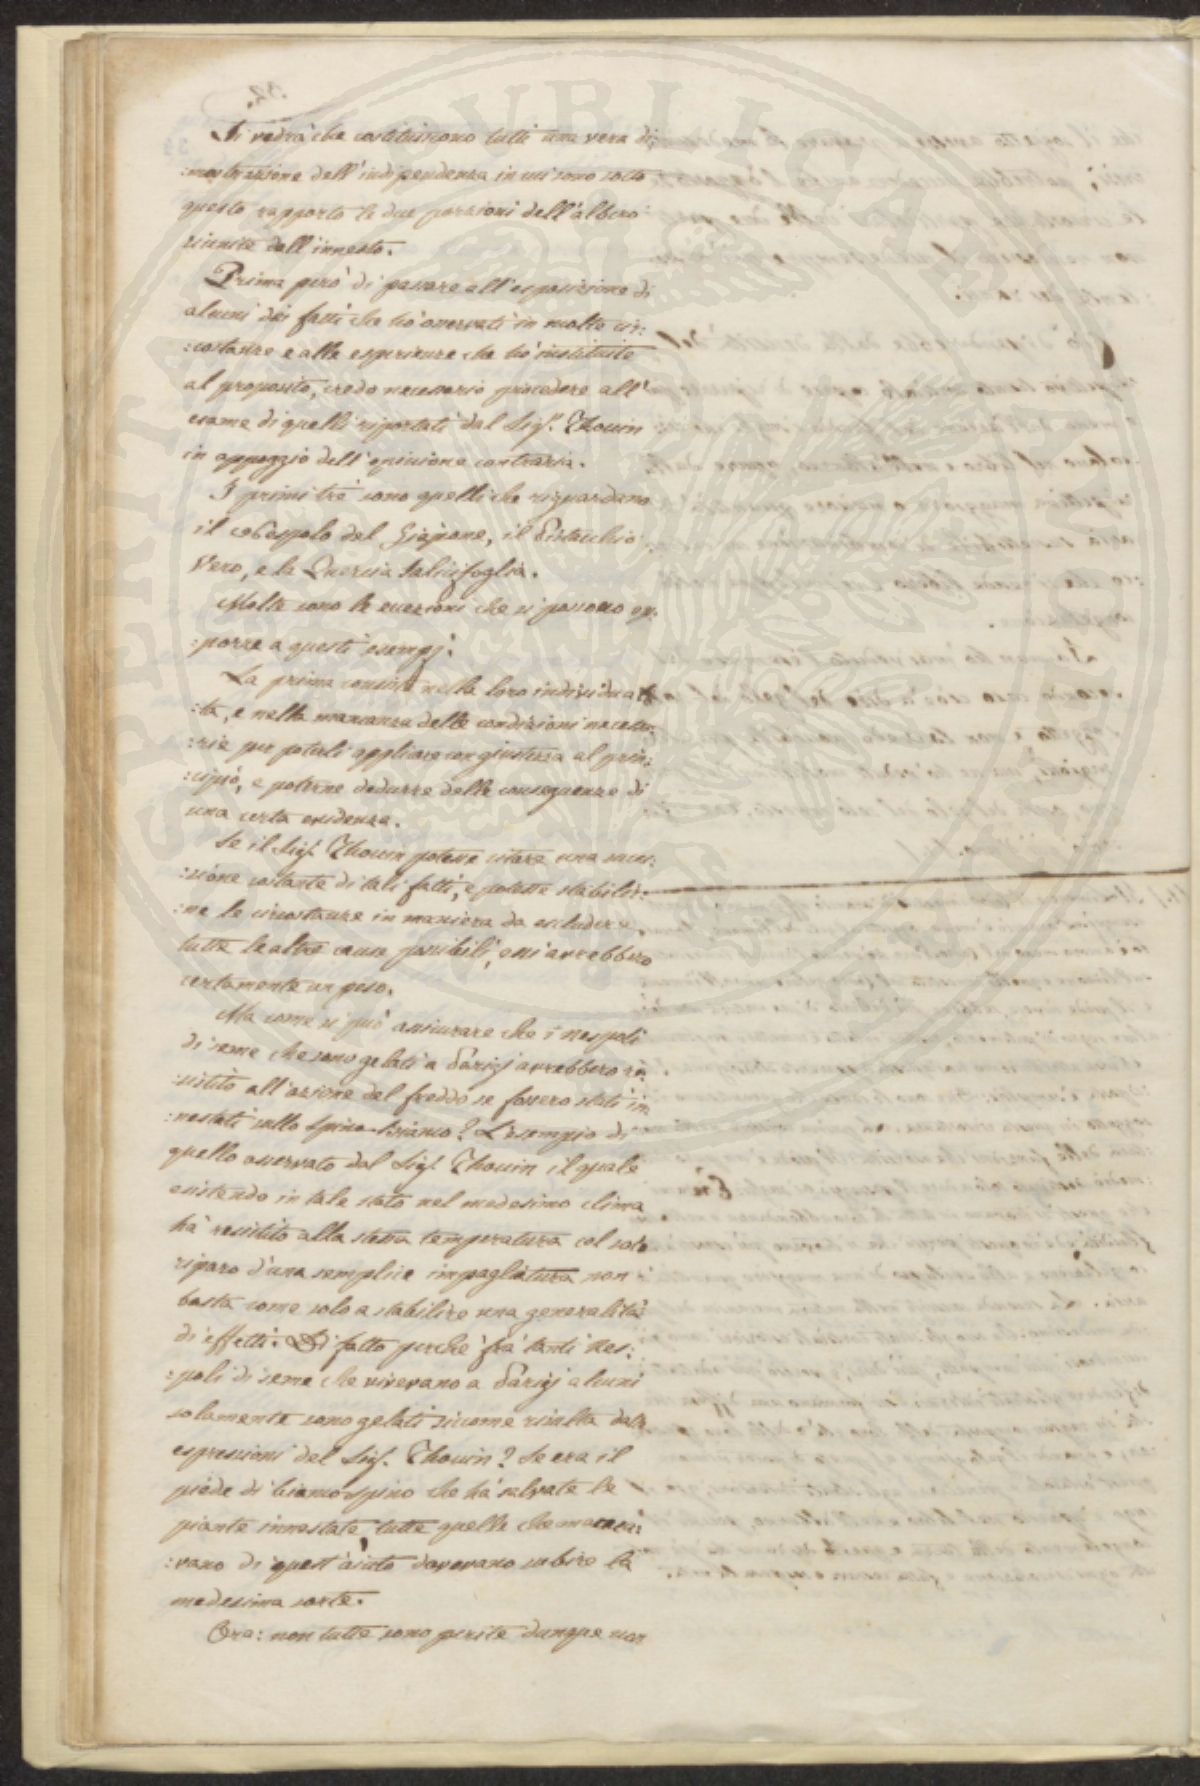 Si vedrà che costituiscono tutti una vera di:
:mostrazione dell'indipendenza in cui sono sotto
questo rapporto le due porzioni dell'albero
riunite dall'innesto.
Prima però di passare all'esposizione di
alcuni dei fatti che hò osservati in molte cir:
:costanze e alle esperienze che hò instituite
al proposito, credo necessario procedere all'
esame di quelli riportati dal Sig.r Thouin
in appoggio dell'opinione contraria.
I primi trè sono quelli che riguardano
il nespolo del Giapone, il Pistacchio
Vero, e la Quercia Salicifoglia.
Molte sono le eccezioni che si possono op:
:porre a questi esempj.
La prima consiste nella loro individuali
:tà, e nella mancanza delle condizioni necessa:
:rie per poterli appliare con giustezza al prin:
:cipio, e poterne dedurre delle conseguenze di
una certa evidenza.
Se il Sig.r Thouin potesse citare una succes:
:sione costante di tali fatti, e potesse stabilir:
:ne le circostanze in maniera da escludere
tutte le altre cause possibili, essi avrebbero
certamente un peso.
Ma come si può assicurare che i nespoli
di seme che sono gelati a Parigj avrebbero re:
:sistito all'azione del freddo se fossero stati in:
:nestati sullo Spino-Bianco? L'esempio di
quello osservato dal Sig.r Thouin il quale
esistendo in tale stato nel medesimo clima
hà resistito alla stessa temperatura col solo
riparo d'una semplice impagliatura non
basta come solo a stabilire una generalità
di effetti. Di fatto perchè frà tanti Nes:
:poli di seme che vivevano a Parigj alcuni
solamente sono gelati siccome risulta dalle
espressioni del Sig.r Thouin? Se era il
piede di biancospino che hà salvate le
piante innestate, tutte quelle che manca:
:vano di quest'aiuto dovevano subire la
medesima sorte.
Ora: non tutte sono perite dunque non